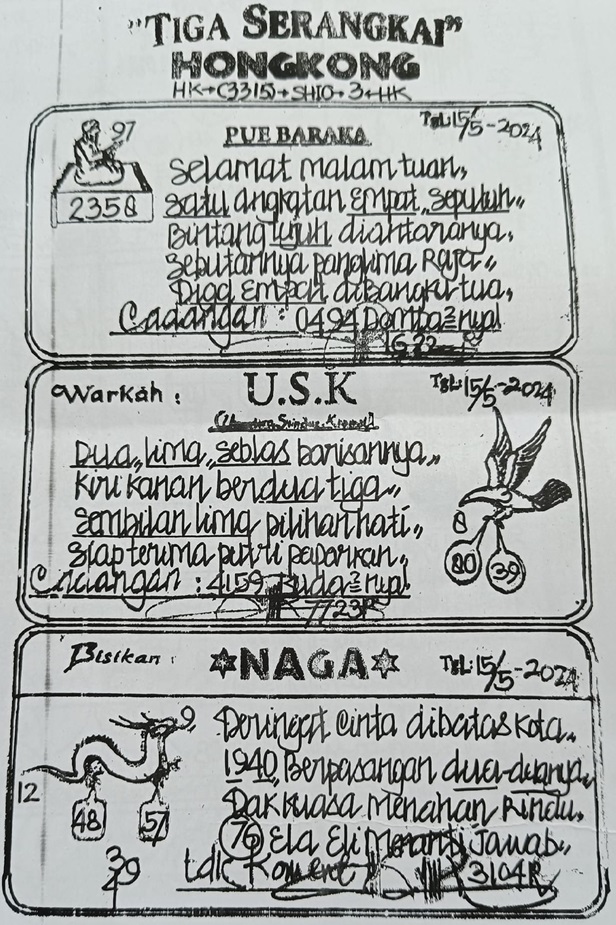 "TIGA SERANGKAI"
HONGKONG
HK→(3315)→SHIO→3←HK
97
2358
PUE BARAKA
TGL:15/5-2024
Selamat malam tuan,
Satu angkatan Empat, Sepuluh,,
Bintang tujuh diantaranya,
Sebutannya panglima Raja,,
Digg Empat diBangku tua,
Cadangan : 0494
Warkah :
U.S.K
TGL:15/5-2024
Dua, lima, seblas barisannya,,
Kiri Kanan berdua tiga,,
Sembilan lima pilihan hati,,
Siap terima putri paparkan,,
Cadangan : 4159 Kuda2nya!
7723R
8
80
39
Bisikan :
NAGA
TGL:15/5-2024
9
12
48
57
39
Peringat Cinta dibatas Kota,
1940, Berpasangan dua-duanya,
Dak kuasa Menahan Rindu,
76 Ela Eli Menanti Jawab,,
tdk Koment
3104R